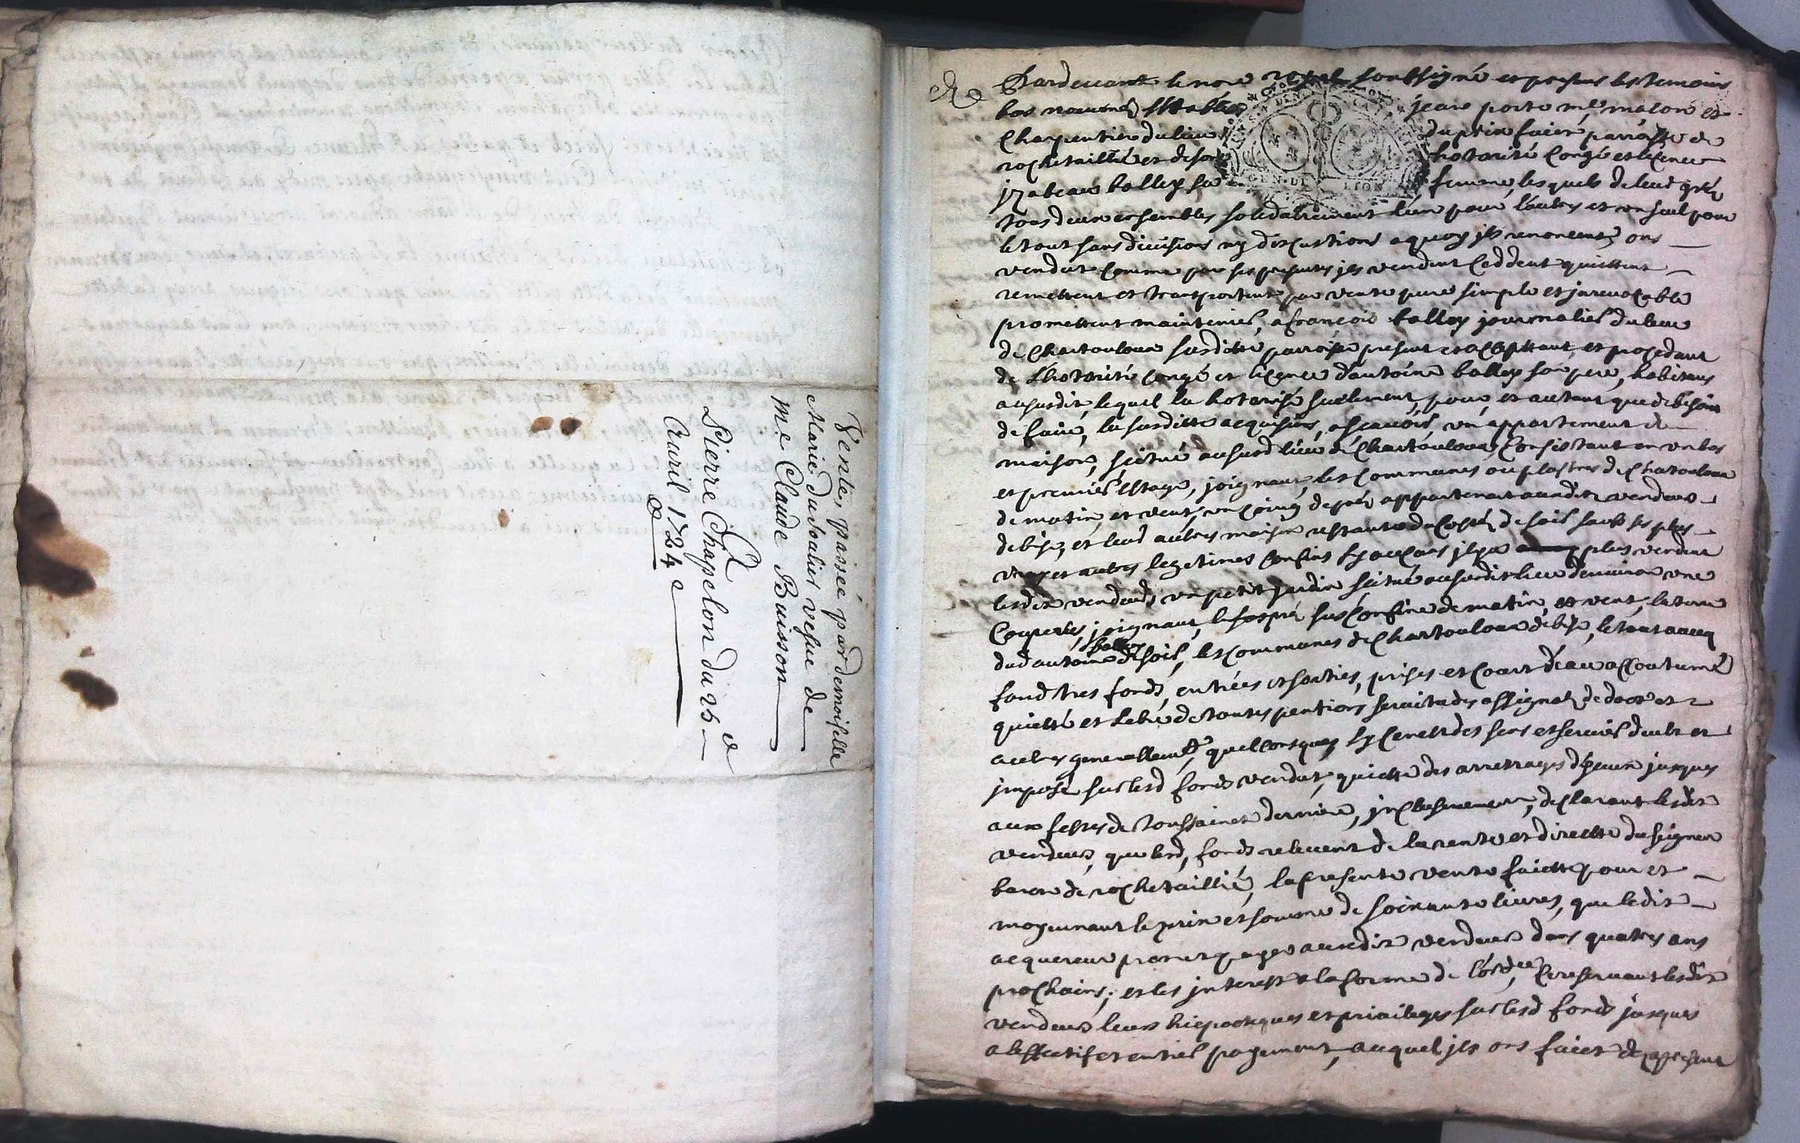 Vente, passée par demoiselle
Marie dusoulier vefue de
Me Claude Buisson
a
Pierre Chapelon du 25 e
Auril 1724
Pardeuant le no.re royal soubsigné et presens les temoins
bas nommés, estably jean porte mre masson et
Charpentier du lieu du prix faict parroisse de
rochetaillié et de son hotorité Congé et licence
yzabeau balley sa femme lesquels de leur gré,
tous deux ensembles solidairement l'un pour l'autre et un seul pour
le tout sans diuision ny discution a quoy jls renoncent, ont
vendut comme par ses presantes jls vendent Ceddent quittent
remettent et transportent par vente pure simple et jrreuocable
promettent maintenir, a françois balley journalier du lieu
de Chartouloux susditte parroisse present et acceptant, et procedant
de l'hotorité congé et licence d'antoine balley son pere, habitans
ausurdit, lequel la hotorisé seullement, pour, et autant que de besoin
de faire, la susditte acquisition, a scauoir un appartement de
maison, scitué ausurd lieu de Chartouloux, Consistant en un bas
et premier estage, joignant, les communes ou plastres de Chartouloux
de matin, et vent, un coing de pré appartenant ausdits vendeurs
de bize, et leur autres maison restante du costé de soir sauf ses plus
vrays et autres legitimes confins sy aucuns jl y a plus vendent
lesdits vendeurs un petit jardin scitué ausurdit lieu d'enuiron une
Couperée, joignant, le susd pré sus Confiné de matin, et vent, la terre
dud antoine balley de soir, les communes de Chartouloux de bize, le tout auecq
fond tres fond, entrées et sorties, prises et cours d'eau accoutumé
quitte et libre de toutes pentions seruitudes assignat, de doct et
autres generallemt quelconques sy ce n'est des sens et seruis deubt et
jmposé sur lesd fonds vendut, quitte des arrerages d'yceux jusques
aux festes de toussainct derniere, jncluseuement, declarant lesdits
vendeurs, que lesd, fonds releuent de la rente et directte du seigneur
baron de rochetaillié, la presente vente faicte pour et
moyennant le prix et somme de soixante liures, que ledit
acquereur promet payer ausdits vendeurs dans quatres ans
prochains; et les jnterest a la forme de l'ordce, se reseruant lesdits
vendeurs leurs hiepoteques et priuileges sur lesd fonds jusques
a l'effectif et entier payement, auquel jls ont faict de present